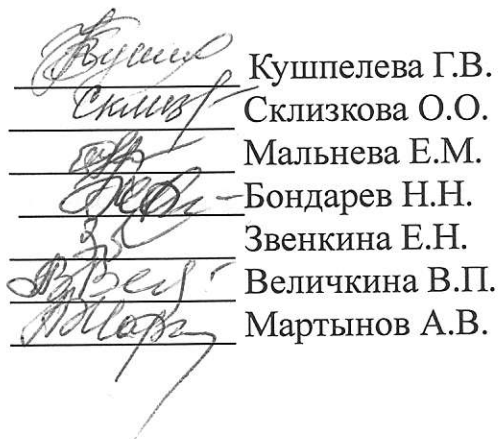 Кушпелева Г.В.
Склизкова О.О.
Мальнева Е.М.
Бондарев Н.Н.
Звенкина Е.Н.
Величкина В.П.
Мартынов А.В.